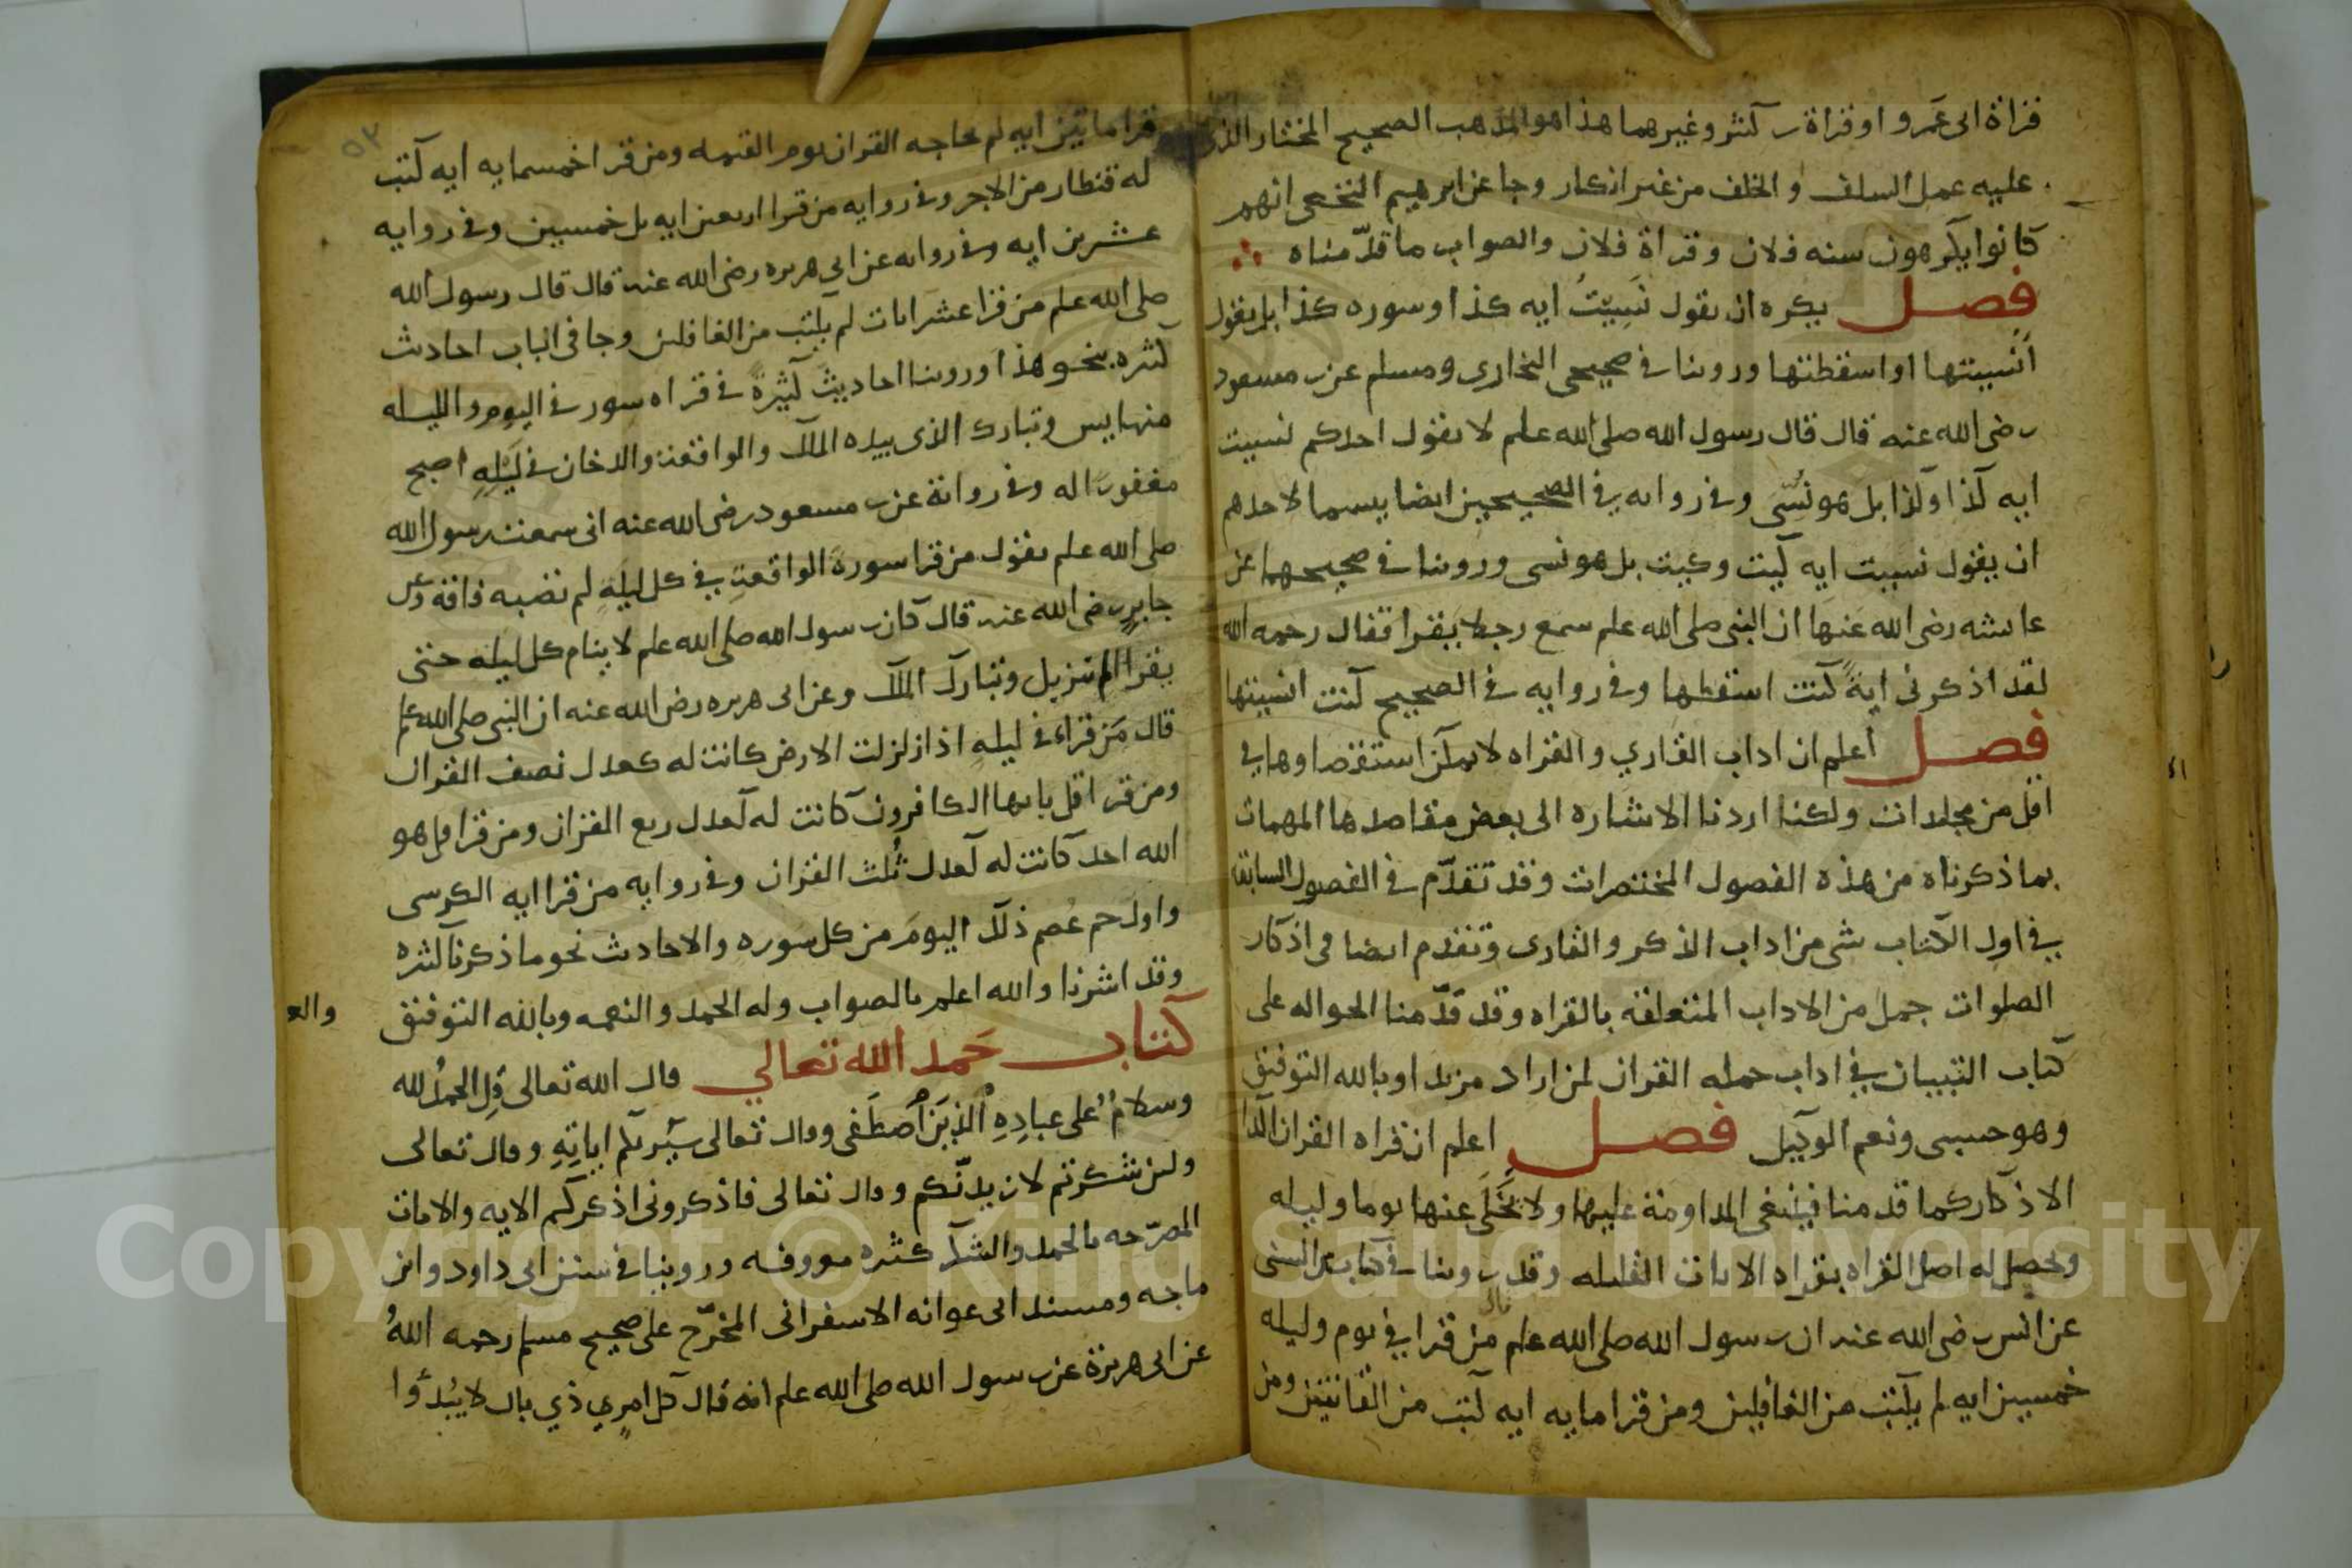 قراة ابى عمرو او قراة بن كثير وغيرهما هذا هو المذهب الصحيح المختار الذى
عليه عمل السلف والخلف من غير انكار وجا عن ابرهيم النخعى انهم
كانوا يكرهون سنه فلان وقراة فلان والصواب ما قدّمناه
فصل يكره ان يقول نَسِيتُ ايه كذا او سوره كذا بل يقول
اُنسيتها او اسقطتها وروينا فى صحيحى البخارى ومسلم عن بن مسعود
رضى الله عنه قال قال رسول الله صلى الله علم لا يقول احدكم نسيت
ايه كذا وكذا بل هو نُسّى وفى روايه فى الصحيحين ايضا بيسما لاحدهم
ان يقول نسيت ايه كيت وكيت بل هو نسى وروينا فى صحيحهما عن
عايشه رضى الله عنها ان النبى صلى الله علم سمع رجلا يقرا فقال رحمه الله
لقد اذكرنى ايةً كنت اسقطها وفى روايه فى الصحيح كنت انسيتها
فصل اعلم ان اداب القاري والقراه لا يمكن استقصاوها فى
اقل من مجلدات ولكنا اردنا الاشاره الى بعض مقاصدها المهمات
بما ذكرناه من هذه الفصول المختصرات وقد تقدّم فى الفصول السابقه
فى اول الكتاب شى من اداب الذكر والقارى وتقدم ايضا فى اذكار
الصلوات جمل من الاداب المتعلقه بالقراه وقد قدّمنا الحواله على
كتاب التبيان فى اداب حمله القران لمن اراد مزيدا وبالله التوفيق
وهو حسبى ونعم الوكيل فصل اعلم ان قراه القران اكد
الاذكار كما قدمنا فينبغى المداومة عليها ولا يخلى عنها يوما وليله
ويحصل له اصل القراه بقراه الايات القليله وقد روينا فى كتاب بن السنى
عن انس رضى الله عنه ان رسول الله صلى الله علم قال من قرا فى يوم وليله
خمسين ايه لم يكتب من الغافلين ومن قرا مايه ايه كتب من القانتين ومن
٥٢
قرا مايتين ايه لم يحاجه القران يوم القيمه ومن قرا خمسمايه ايه كتب
له قنطار من الاجر وفى روايه من قرا اربعين ايه بل خمسين وفى روايه
عشرين ايه وفى روايه عن ابى هريره رضى الله عنه قال قال رسول الله
صلى الله علم من قرا عشر ايات لم يكتب من الغافلين وجا فى الباب احاديث
كثره بنحو هذا وروينا احاديث كثيرةً فى قراه سور فى اليوم والليله
منها يس وتبارك الذى بيده الملك والواقعة والدخان فى لَيلهِ اصبح
مغفورًا له وفى رواية عن بن مسعود رضى الله عنه انى سمعت رسول الله
صلى الله علم يقول من قرا سورة الواقعةِ فى كل ليلهٍ لم تصبه فاقه وعن
جابرٍ رضى الله عنه قال كان رسول الله صلى الله علم لا ينام كل ليله حتى
يقرا الم تنزيل وتبارك الملك وعن ابى هريره رضى الله عنه ان النبى صلى الله علم
قال مَن قراء فى ليلهِ اذا زلزلت الارض كانت له كعدل نصف القران
ومن قرا قل يايها الكافرون كانت له كعدل ربع القران ومن قرا قل هو
الله احد كانت له كعدل ثُلث القران وفى روايه من قرا ايه الكرسى
واول حم عُصم ذلك اليومَ من كل سوره والاحاديث نحو ما ذكرنا كثره
وقد اشرنا والله اعلم بالصواب وله الحمد والنعمه وبالله التوفيق
كتاب حَمد الله تعالي قال الله تعالى قُلِ الحمدُ لله
وسلامٌ على عبادِهِ الذين اصطَفى وقال تعالى سَيُريكم اياتِهِ وقال تعالى
ولين شكرتم لازيدنّكم وقال تعالى فاذكرونى اذكركم الايه والايات
المصرّحه بالحمد والشكر كثره معروفه وروينا فى سنن ابى داود وابن
ماجه ومسند ابى عوانه الاسفراينى المخرّج على صحيح مسلم رحمه اللهُ
عن ابى هريرة عن رسول الله صلى الله علم انه قال كل امرٍ ذي بال لا يُبدؤا
Copyright © King Saud University